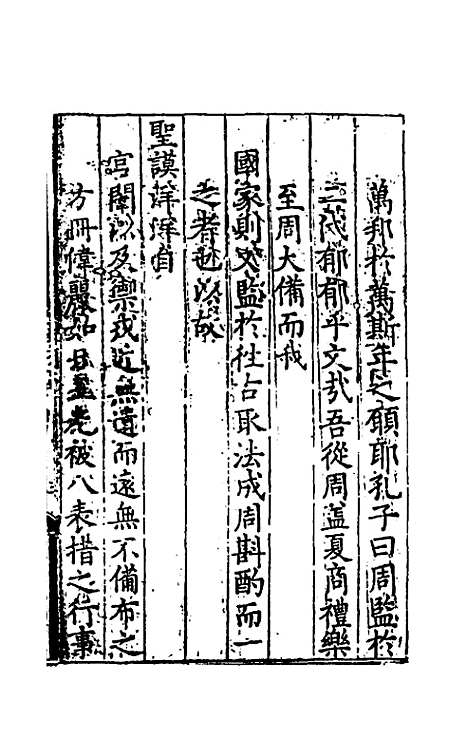 萬邦於萬斯年之願耶孔子曰周監於
二代郁郁乎文哉吾從周蓋夏商禮樂
至周大備而我
國家則又監於往古取法成周斟酌而一
之者也以故
聖謨洋洋自
宮閫以及禦戎近無遺而遠無不備布之
方冊偉麗如日星光被八表措之行事